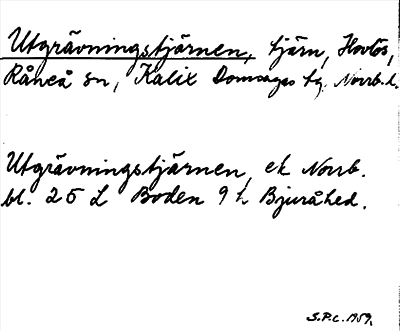 Utgrävningstjärnen, tjärn, Hovlös,
Råneå sn, Kalix Domsagas tg. Norrb. l.
Utgrävningstjärnen, ek Norrb.
bl. 25 L Boden 9 h Bjuråhed.
S.P.C. 1959.